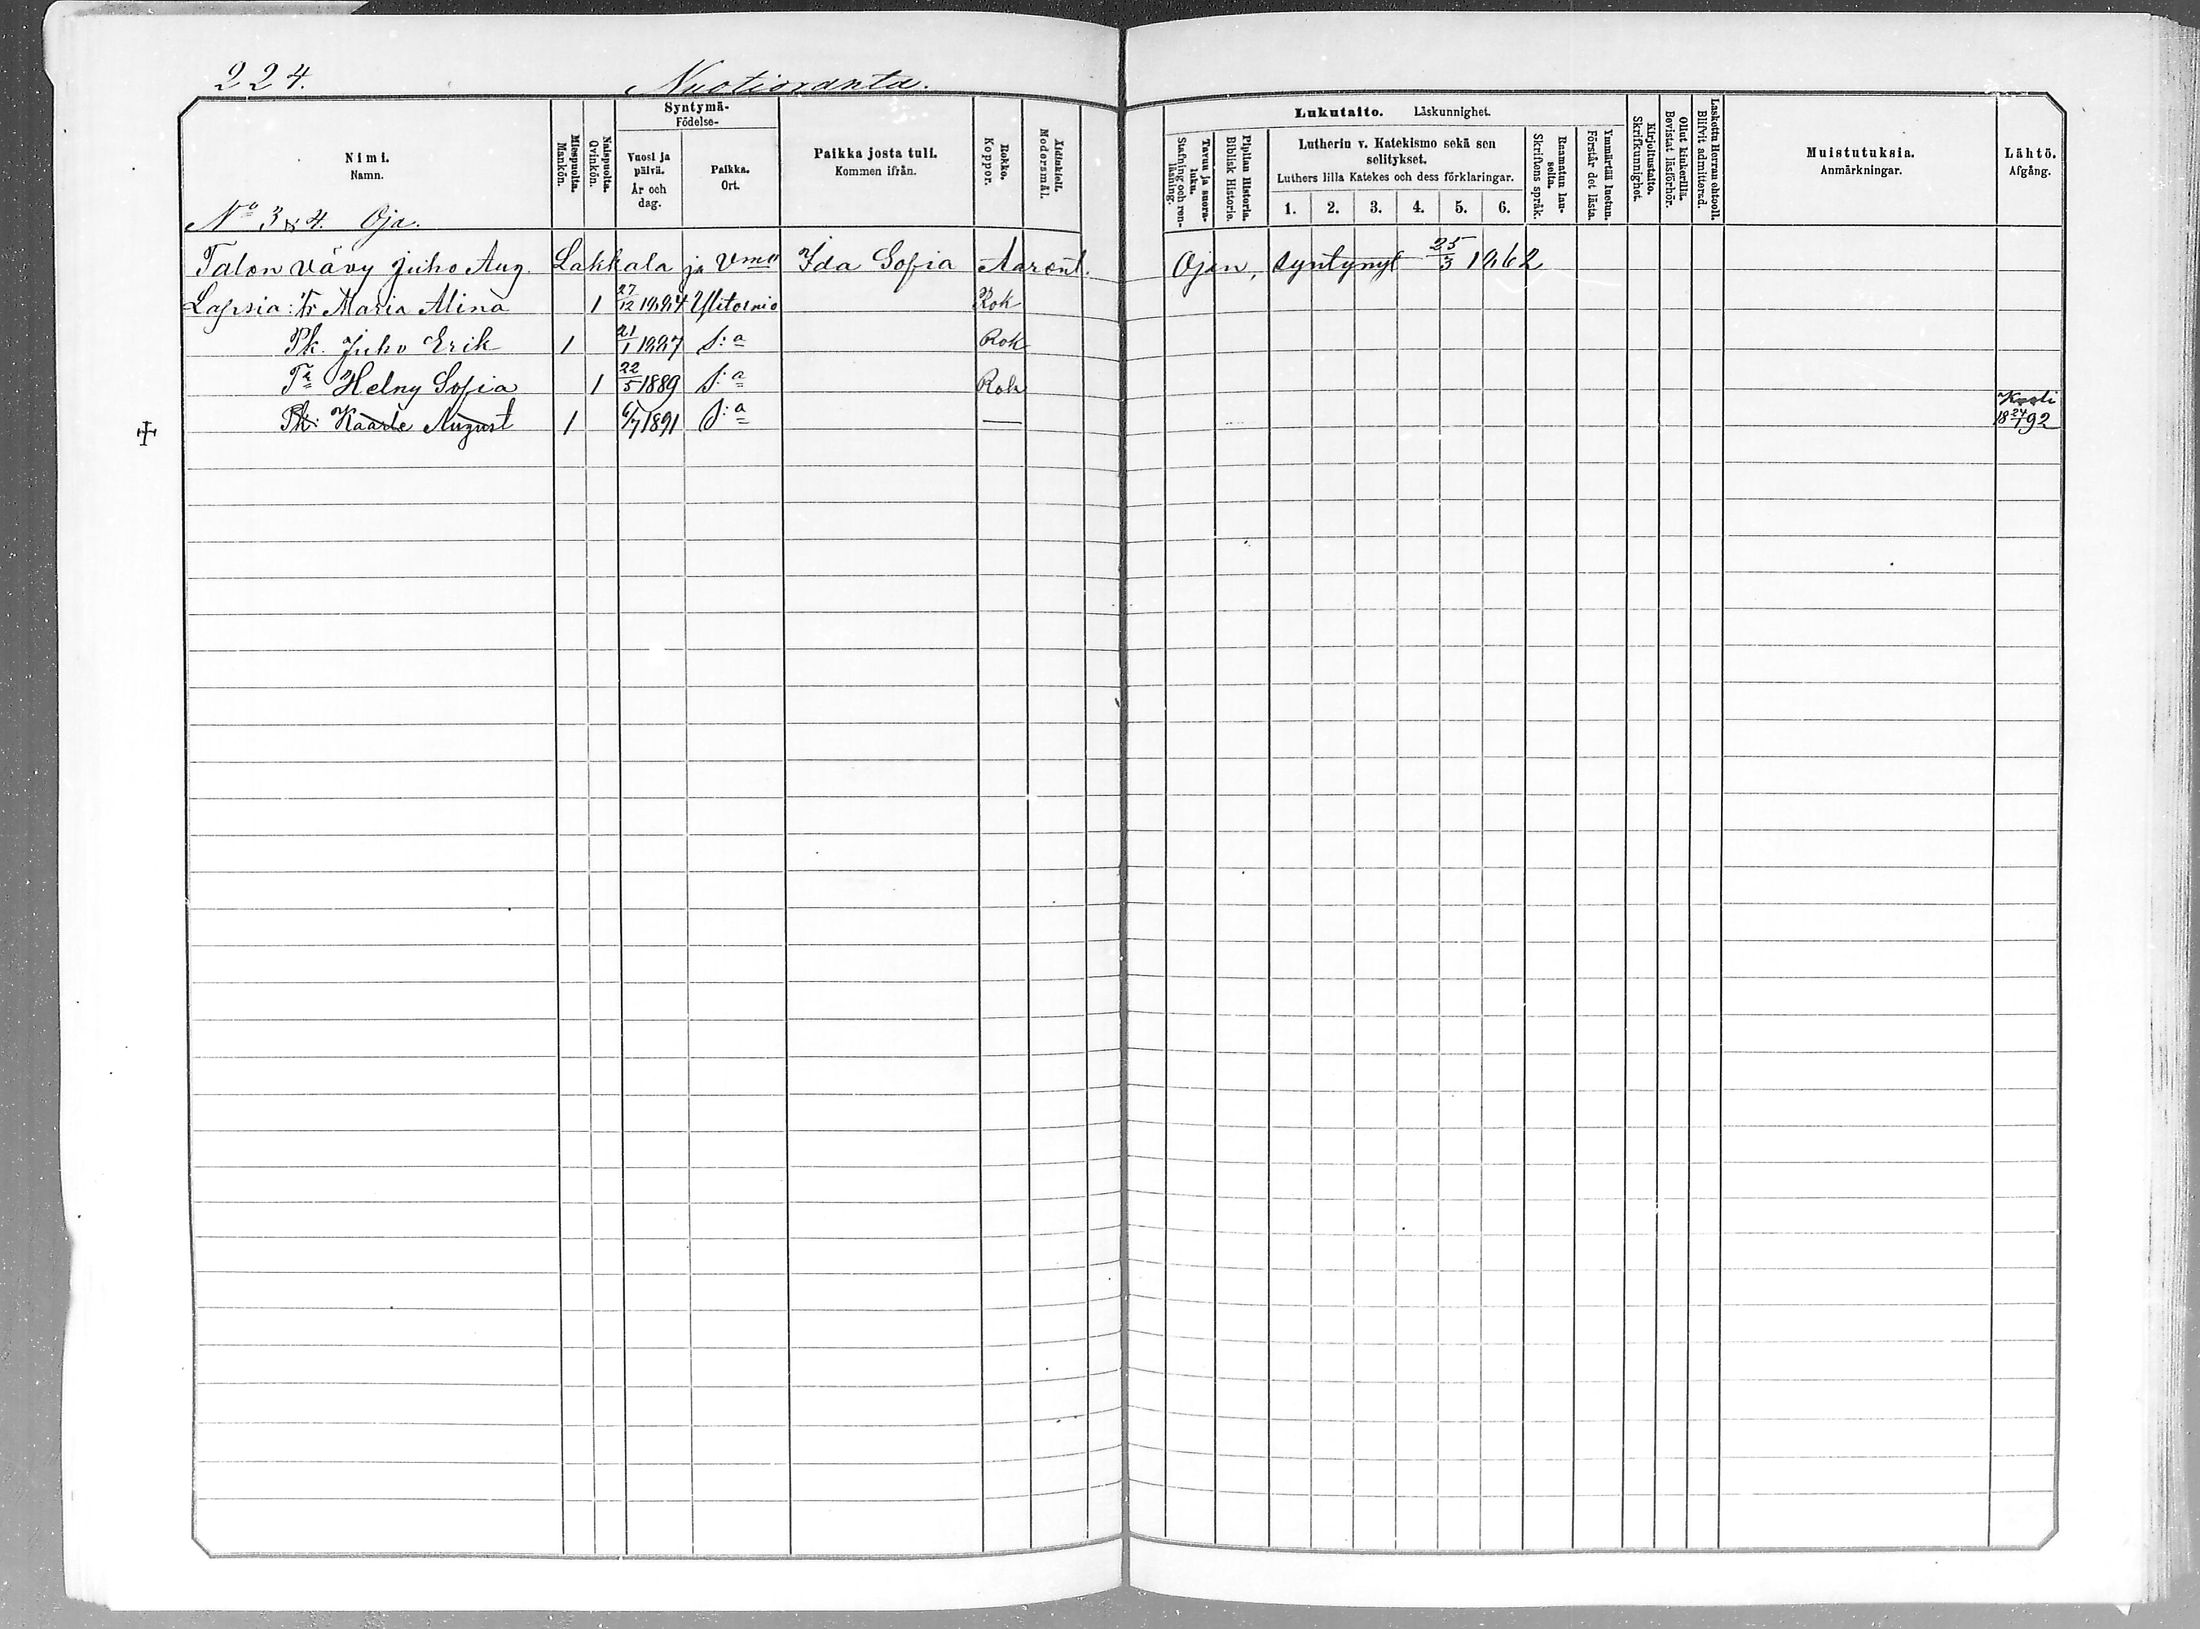 224.
Nuotioranta.
Nimi.
Namn.
Miespuolta.
Mankön.
Naispuolta.
Qvinkön.
Syntymä-
Födelse-
Vuosi ja päivä.
År och dag.
Paikka.
Ort.
Paikka josta tuli.
Kommen ifrån.
Rokko.
Koppor.
Äidinkieli.
Modersmål.
Lukutaito. Läskunnighet.
Tavuu ja suora-luku.
Stafning och ren-läsning.
Piplian Historia.
Biblisk Historie.
Lutherin v. Katekismo sekä sen selitykset.
Luthers lilla Katekes och dess förklaringar.
1. 2. 3. 4. 5. 6.
Raamatun lau-seita.
Skriftens språk.
Ymmärtää luetun.
Förstår det lästa.
Kirjoitustaito.
Skrifkunnighet.
Ollut kinkerillä.
Bevistat läsförhör.
Laskettu Herran ehtooll.
Blifvit admitterad.
Muistutuksia.
Anmärkningar.
Lähtö.
Afgång.
No 3 & 4. Oja.
Talon vävy Juho Aug. Lakkala ja Vmo Ida Sofia Aaront. Ojan, syntynyt 25/3 1862
Lapsia: Tr Maria Alina 1 27/12 1884 Ylitornio Rok
Pk. Juho Erik 1 21/1 1887 S:a Rok
Tr Helny Sofia 1 22/5 1889 S:a Rok
Pk. Kaarle August 1 6/7 1891 S:a — Kuoli 18 24/1 92